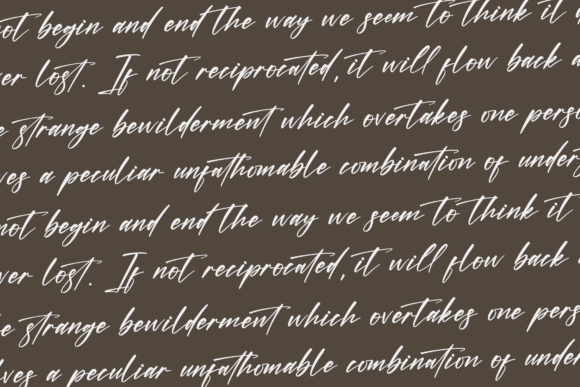 not begin and end the way we seem to think it
ver lost. If not reciprocated, it will flow back
e strange bewilderment which overtakes one pers
ves a peculiar unfathomable combination of unders
not begin and end the way we seem to think it
ver lost. If not reciprocated, it will flow back
e strange bewilderment which overtakes one pers
lves a peculiar unfathomable combination of under